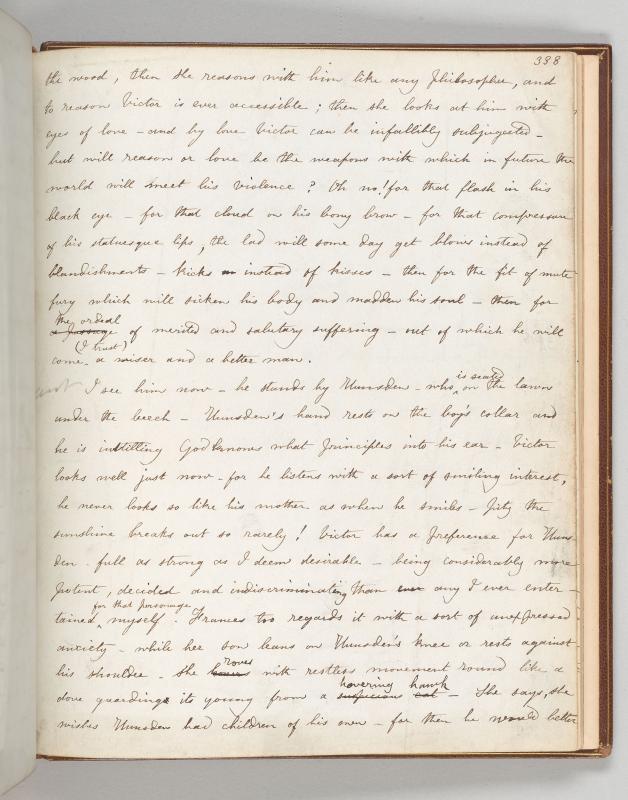 338
the wood, then she reasons with him like any Philosopher, and
to reason Victor is ever accessible; then she looks at him with
eyes of love – and by love Victor can be infallibly subjugated –
but will reason or love be the weapons with which in future the
world will meet his violence? Oh no! for that flash in his
black eye – for that cloud on his bony brow – for that compressure
of his statuesque lips, the lad will some day get blows instead of
blandishments – kicks instead of kisses – then for the fit of mute
fury which will sicken his body and madden his soul – then for
the ordeal
a passage of merited and salutary suffering – out of which he will
(I trust)
come – a wiser and a better man.
is seated
I see him now – he stands by Hunsden – who on the lawn
under the beech – Hunsden's hand rests on the boy's collar and
he is instilling God knows what principles into his ear – Victor
looks well just now – for he listens with a sort of smiling interest,
he never looks so like his mother as when he smiles – pity the
sunshine breaks out so rarely! Victor has a preference for Huns-
den – full as strong as I deem desirable – being considerably more
potent, decided and indiscriminating than ever any I ever enter-
for that personage
tained myself. Frances too regards it with a sort of unexpressed
anxiety – while her son leans on Hunsden's knee or rests against
roves
his shoulder – she with restless movement round like a
hovering hawk
dove guarding its young from a suspicious cat – She says, she
wishes Hunsden had children of his own – for then he would better